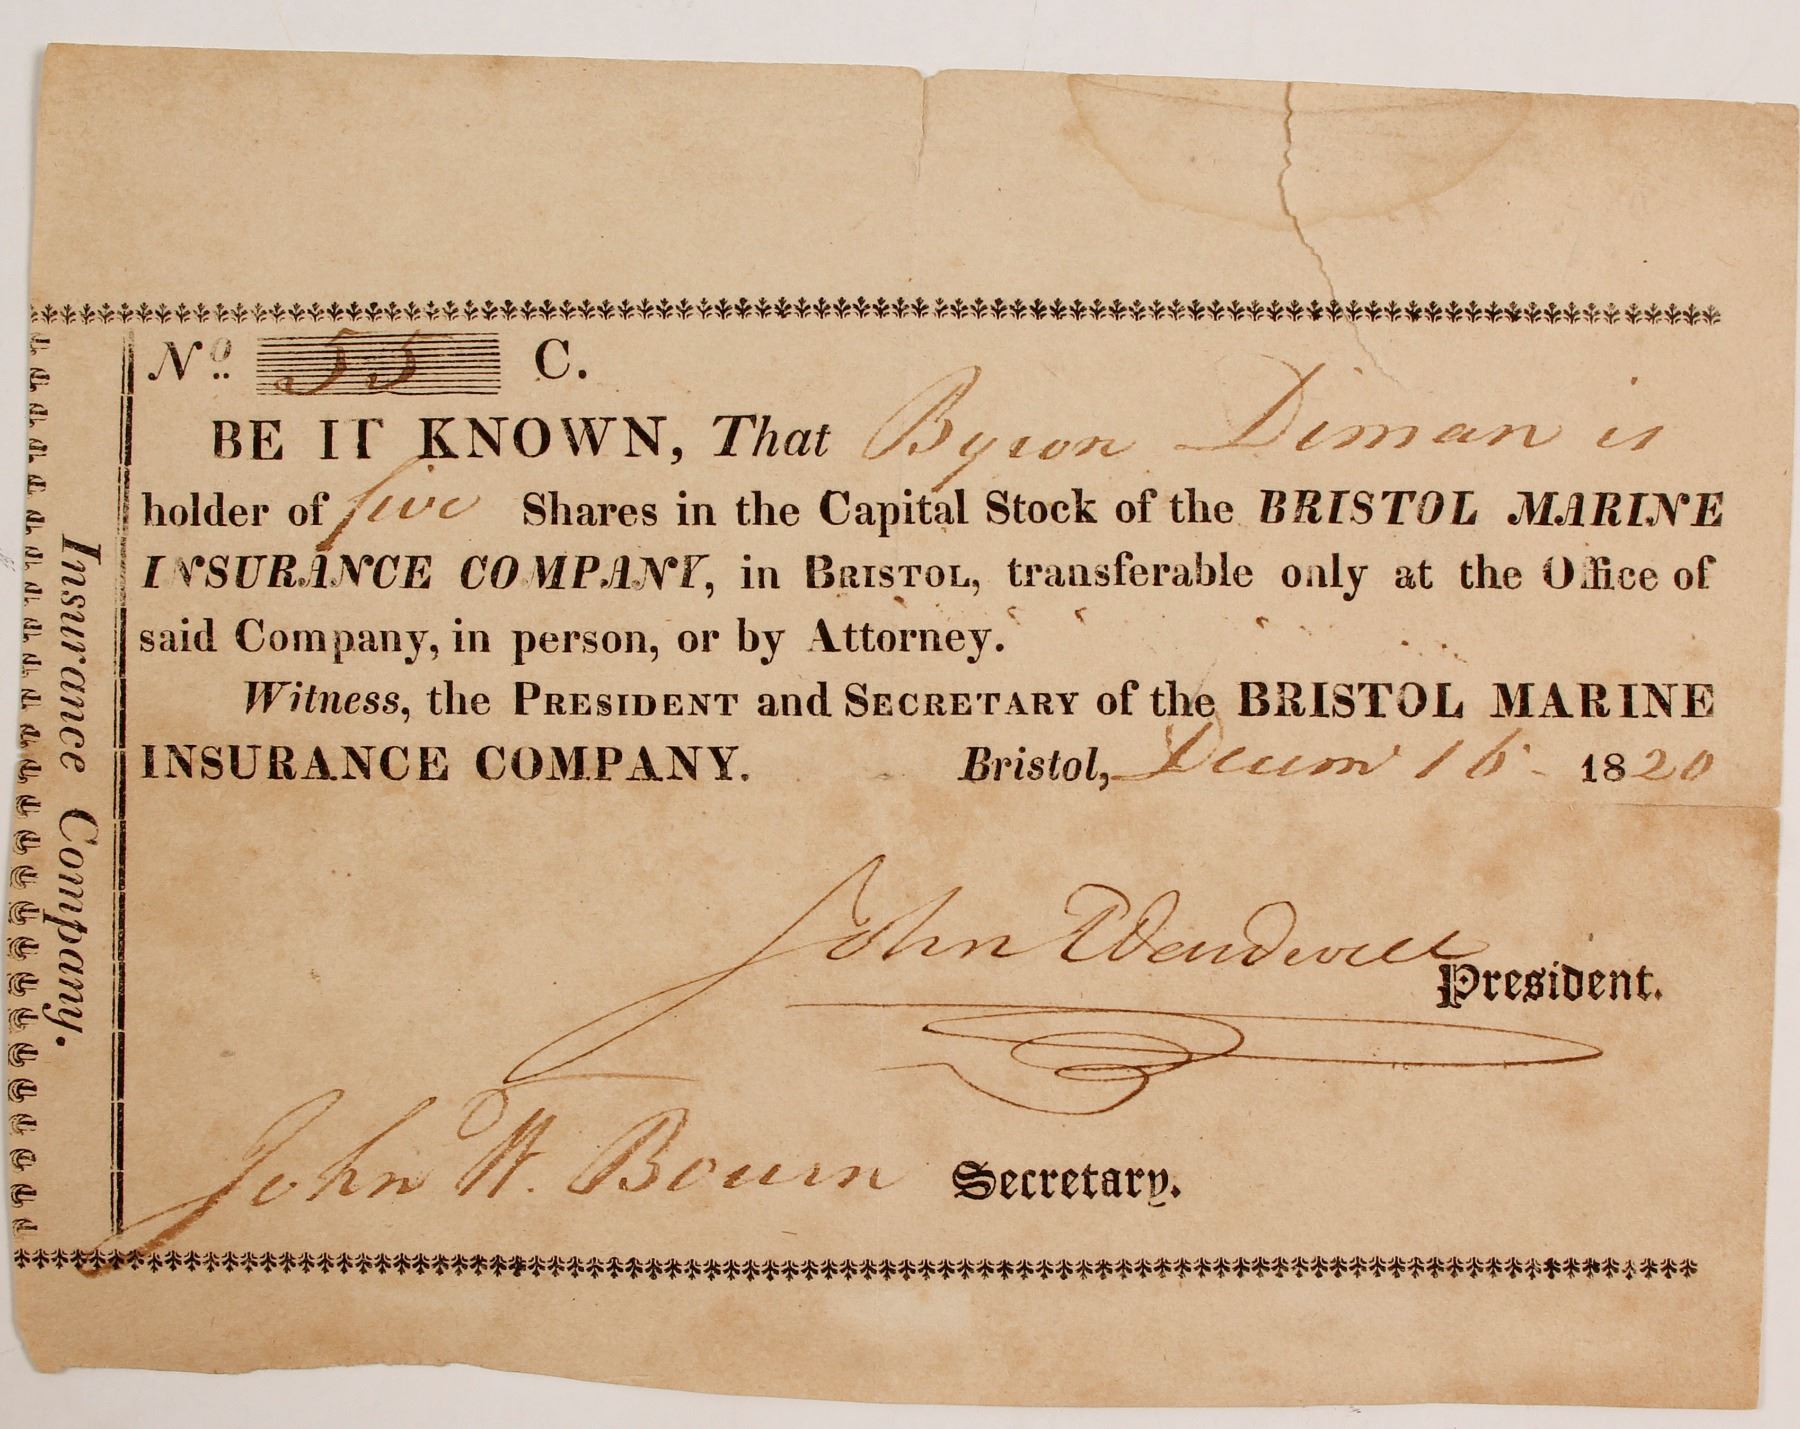 No. 55 C.
BE IT KNOWN, That Byron Diman is
holder of five Shares in the Capital Stock of the BRISTOL MARINE
INSURANCE COMPANY, in BRISTOL, transferable only at the Office of
said Company, in person, or by Attorney.
Witness, the PRESIDENT and SECRETARY of the BRISTOL MARINE
INSURANCE COMPANY. Bristol, Decem 16 1820
John Wardwell
President.
John W. Bourn Secretary.
Insurance Company.